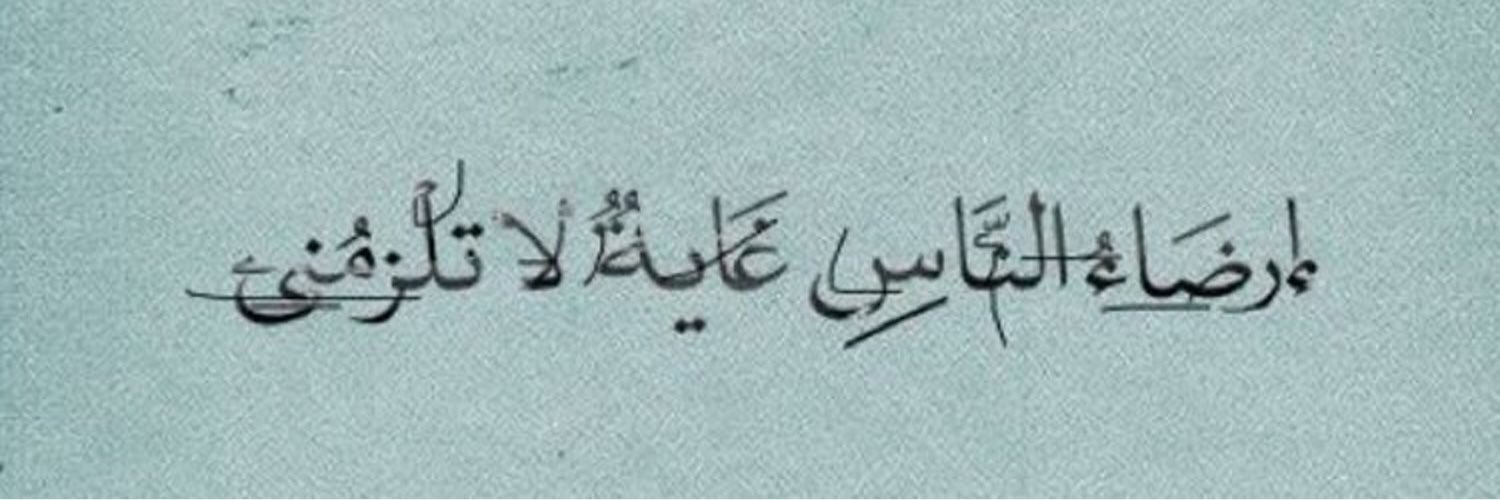 إرضَاءُ النَّاسِ غَايةٌ لا تلزمُني